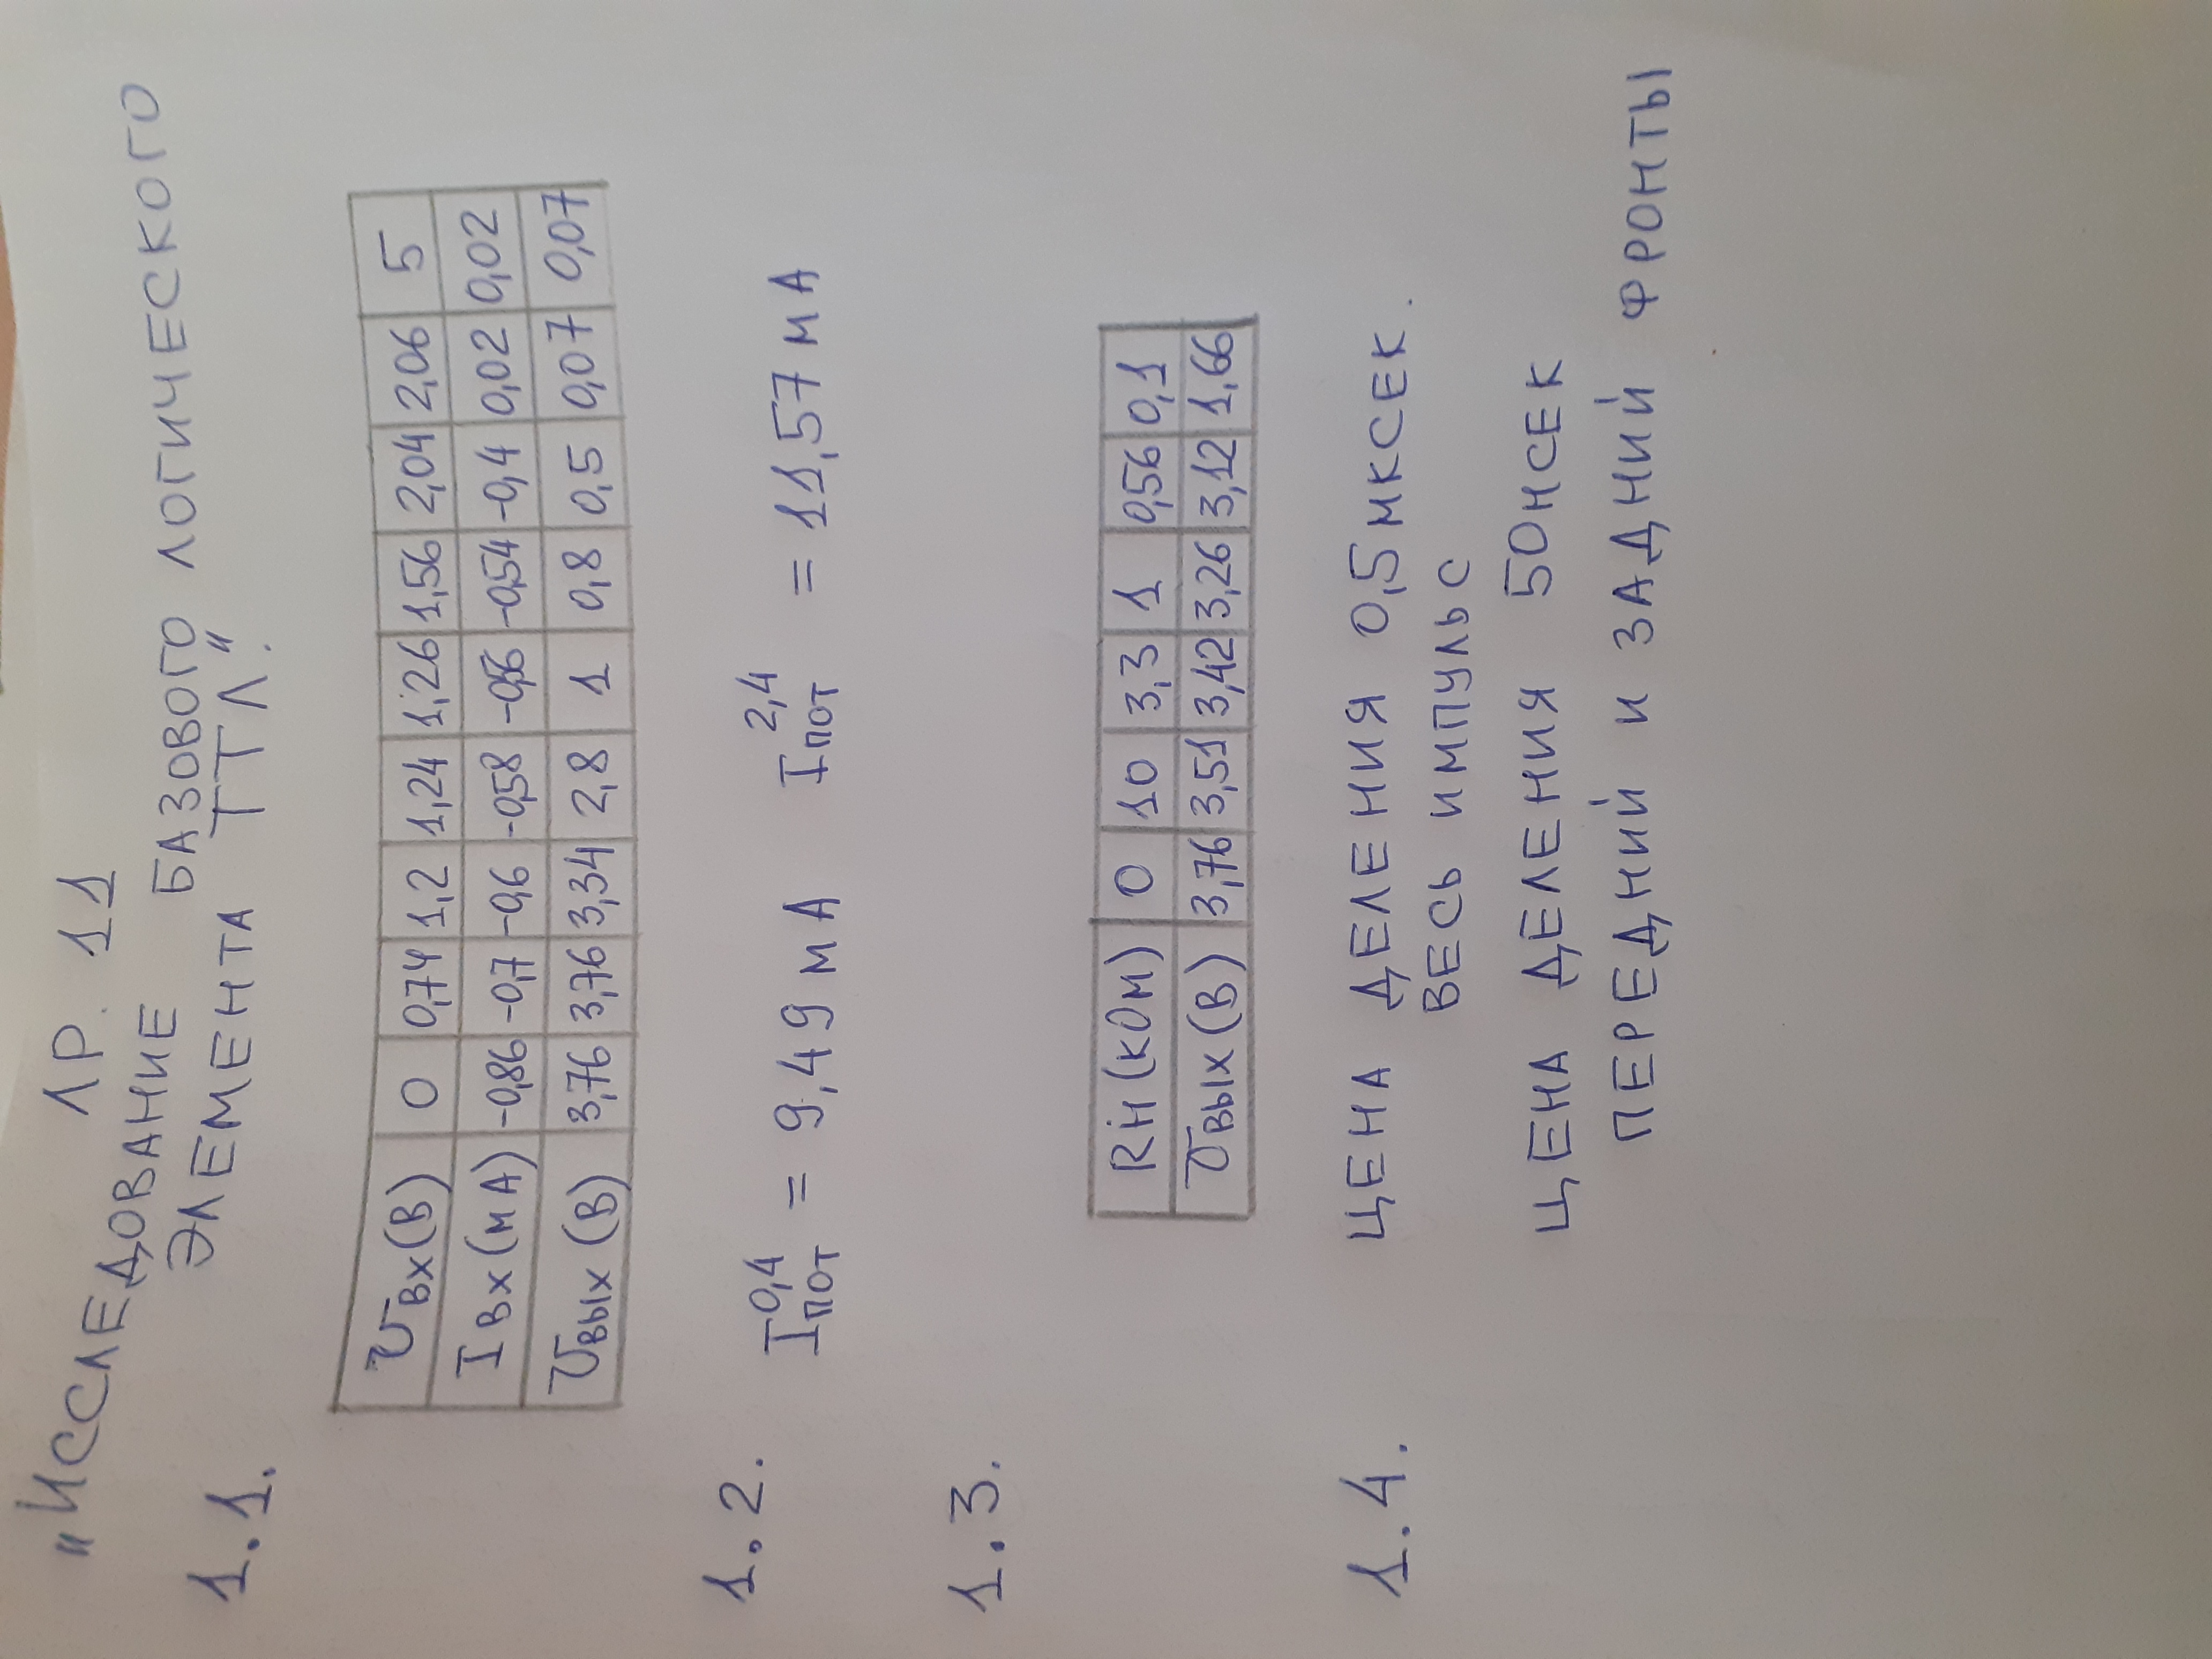 ЛР. 11
"Исследование базового логического
элемента ТТЛ".
1.1.
Uвх(В) 0 0,74 1,2 1,24 1,26 1,56 2,04 2,06 5
Iвх(мА) -0,86 -0,7 -0,6 -0,58 -0,56 -0,54 -0,4 0,02 0,02
Uвых(В) 3,76 3,76 3,34 2,8 1 0,8 0,5 0,07 0,07
1.2. Iпот^0,4 = 9,49 мА Iпот^2,4 = 11,57 мА
1.3.
Rн(кОм) 0 10 3,3 1 0,56 0,1
Uвых(В) 3,76 3,51 3,42 3,26 3,12 1,66
1.4. ЦЕНА ДЕЛЕНИЯ 0,5 МКСЕК.
ВЕСЬ ИМПУЛЬС
ЦЕНА ДЕЛЕНИЯ 50НСЕК
ПЕРЕДНИЙ И ЗАДНИЙ ФРОНТЫ